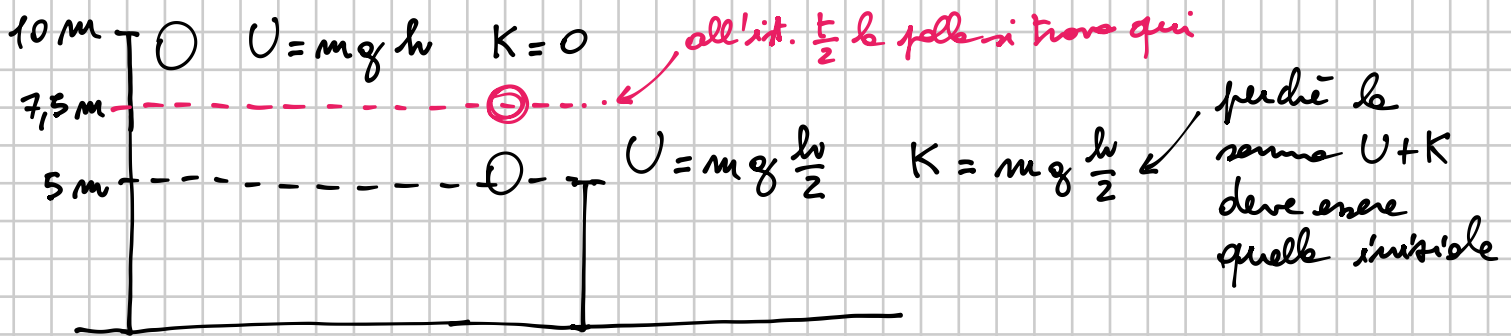 10 m U = mgh K = 0
all'ist. t/2 la palla si trova qui
7,5 m
5 m U = mg h/2 K = mg h/2
perché la
somma U+K
deve essere
quella iniziale